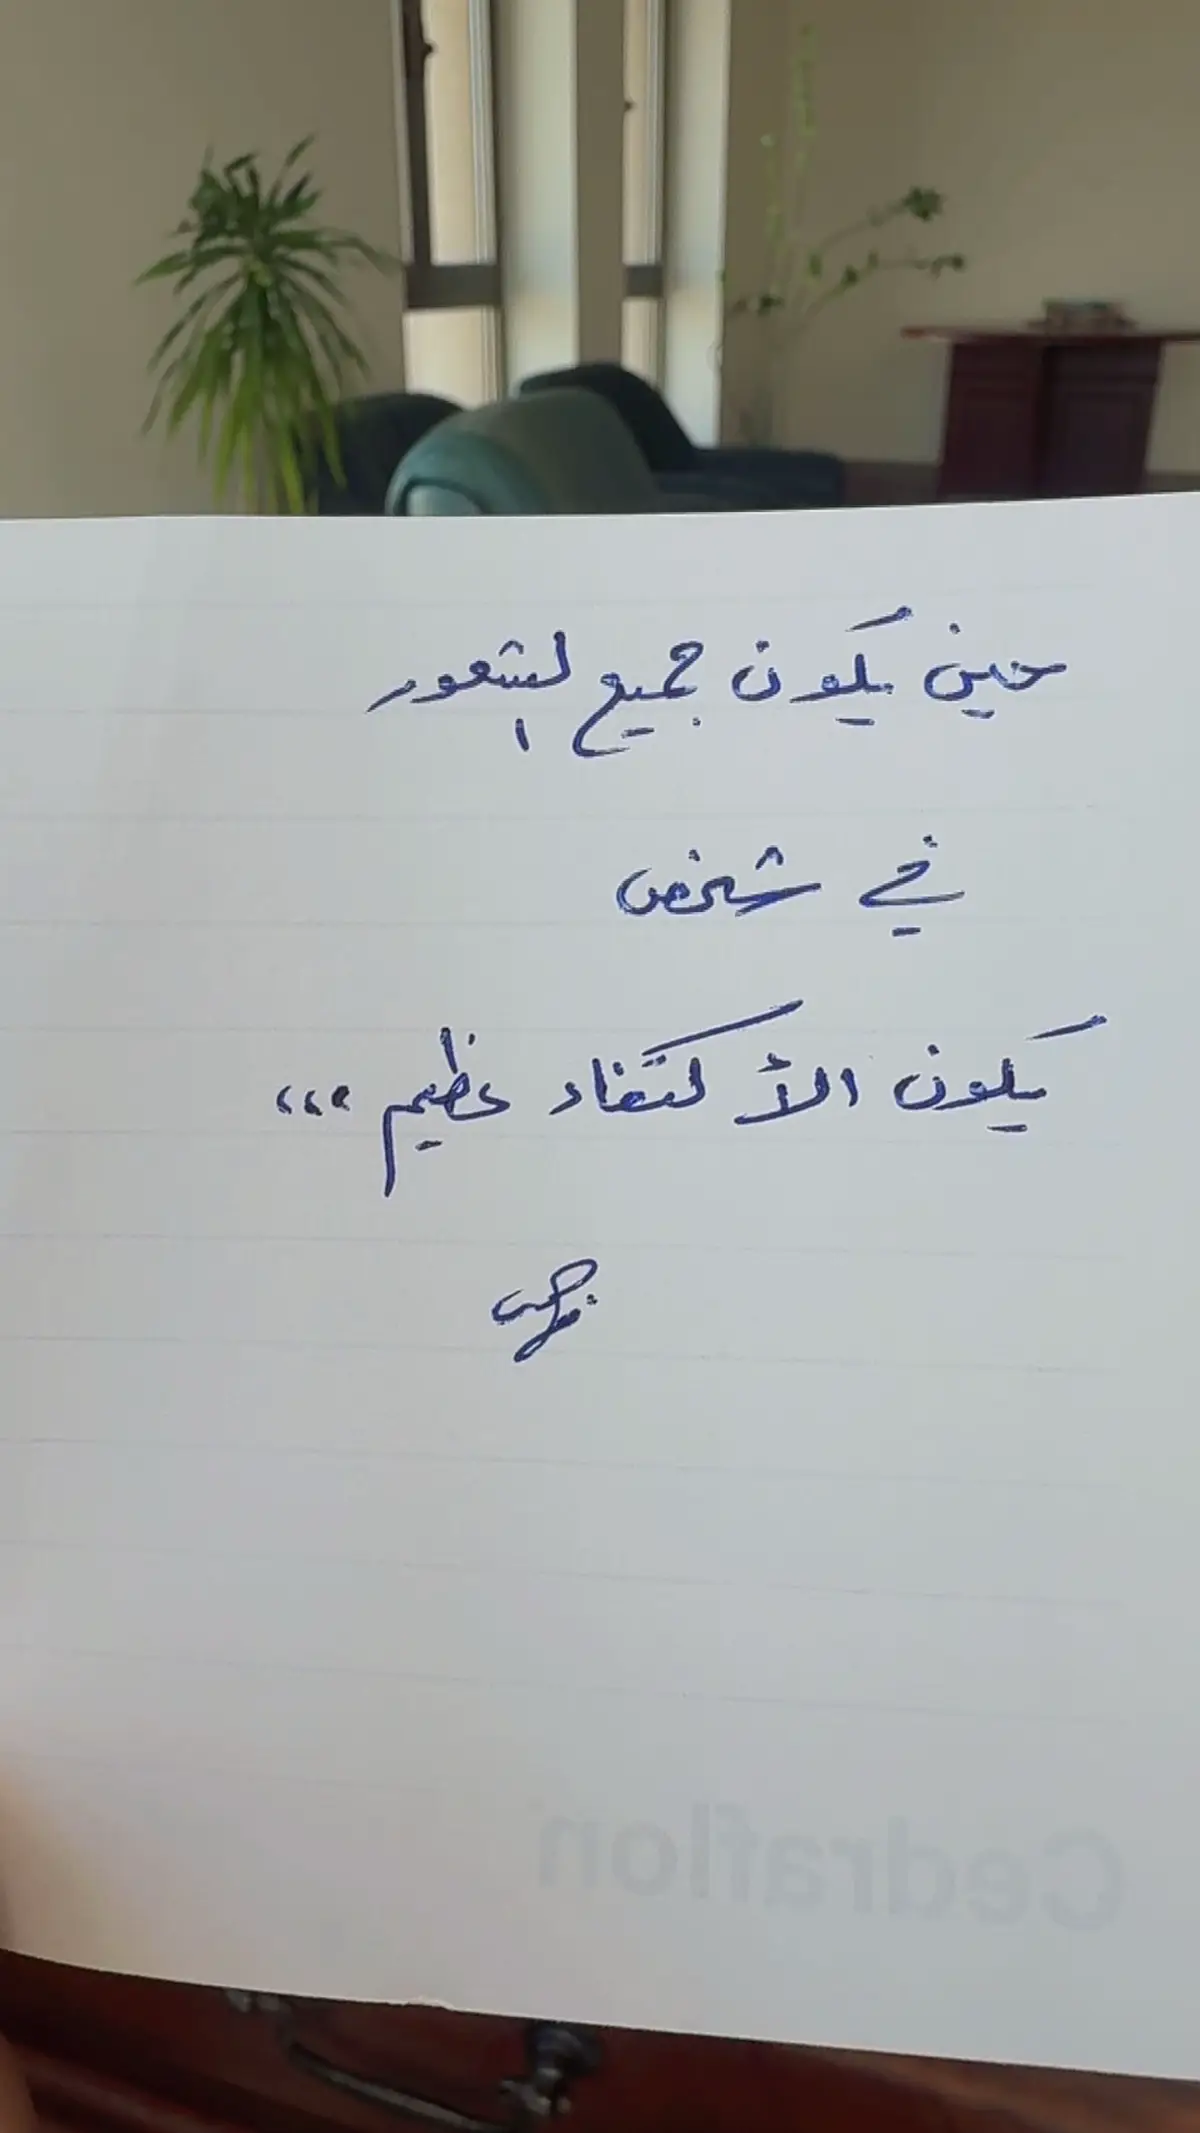 حين يكون جميع الشعور
في شخص
يكون الأكتفاء عظيم ،،،
Cedraflon